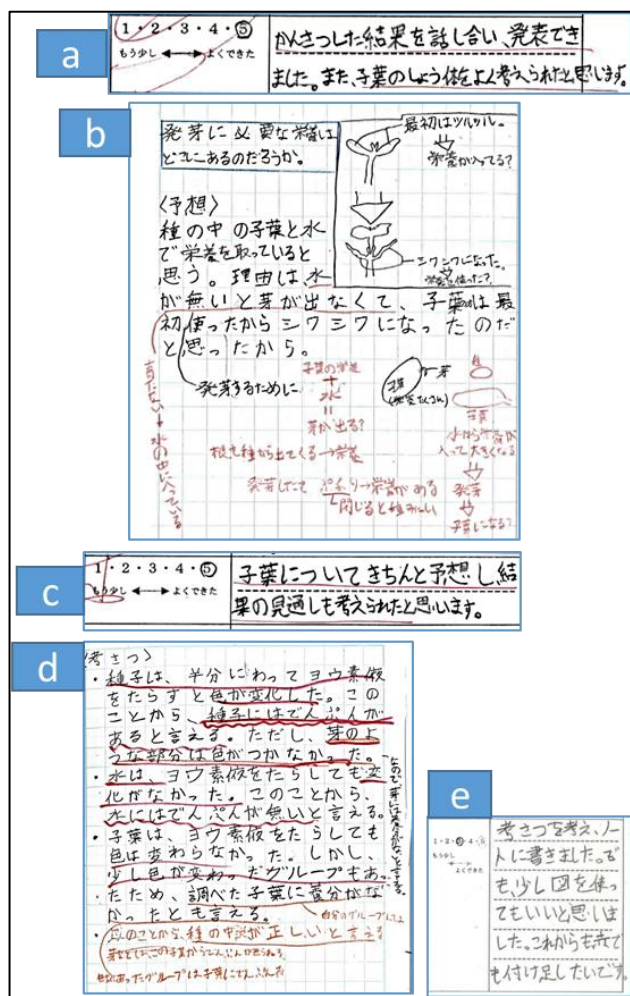 a
1・2・3・4・⑤
もう少し ↔ よくできた
かんさつした結果を話し合い、発表でき
ました。また、子葉のしょう体をよく考えられたと思います。
b
発芽に必要な栄養は
どこにあるのだろうか。
最初はツルツル。
栄養が入ってる?
シワシワになった。
栄養使った?
〈予想〉
種の中の子葉と水
で栄養を取っていると
思う。理由は、水
が無いと芽が出なくて、子葉は最
初使ったからシワシワになったのだ
と思ったから。
発芽するために
育たない→水の中に入っている
子葉の栄養
+
水
=
芽が出る?
根も種から出てくる→栄養
発芽したて ぷっくり→栄養がある
閉じると種みたい
芽
子葉
水から栄養が
入って大きくなる
発芽
子葉になる?
c
1・2・3・4・⑤
もう少し ↔ よくできた
子葉についてきちんと予想し、結
果の見通しも考えられたと思います。
d
〈考さつ〉
・種子は、半分にわってヨウ素液
をたらすと色が変化した。この
ことから、種子にはでんぷんが
あると言える。ただし、芽のよ
うな部分は色がつかなかった。
・水は、ヨウ素液をたらしても変
化がなかった。このことから、
水にはでんぷんが無いと言える。
・子葉は、ヨウ素液をたらしても
色は変わらなかった。しかし、
少し色が変わったグループもあっ
たため、調べた子葉に養分がな
かったとも言える。
・以上のことから、種の中が正しいと言える
e
1・2・③・4・5
もう少し ↔ よくできた
考さつを考え、ノー
トに書きました。で
も、少し図を使っ
てもいいと思いま
した。これからも赤で
も付け足したいです。